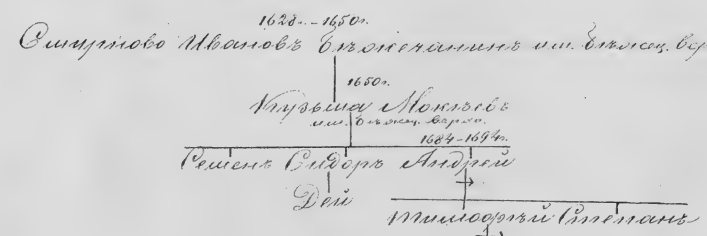 1628г. – 1650г.
Смирново Ивановъ Бѣжечанинъ им. Бѣжец. вер
1650г.
Кузьма Мокѣевъ
им. Бѣжец. верхо.
1684–1694г.
Семенъ Сидоръ Андрей
Дей
Тимофѣй Степанъ